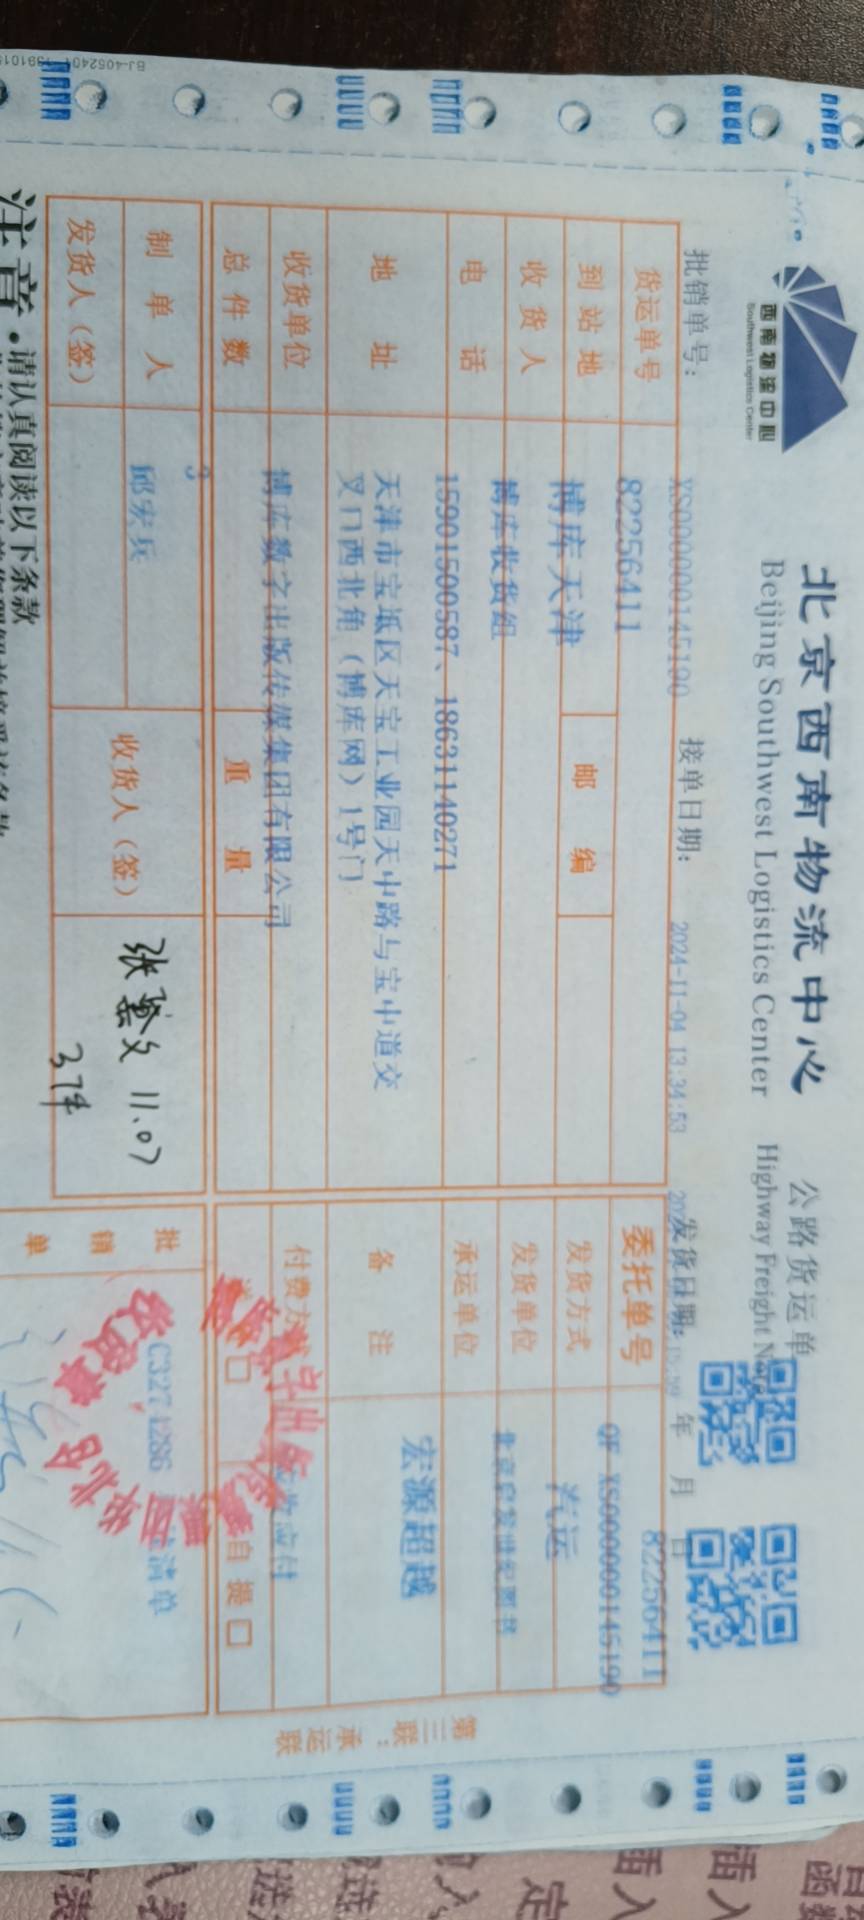 北京西南物流中心 公路货运单
Beijing Southwest Logistics Center Highway Freight Note
西南物流中心
Southwest Logistics Center
批销单号: XS0000000145190 接单日期: 2024-11-04 13:34:53 发货日期: 年 月 日
货运单号 82256411
到站地 博库天津 邮编
收货人 博库收货组
电话 15901500587、18631140271
地址 天津市宝坻区天宝工业园天中路与宝中道交
叉口西北角（博库网）1号门
收货单位 博库数字出版传媒集团有限公司
总件数 3 重量
制单人 邱宏兵 收货人（签） 11.07
发货人（签） 3件
委托单号 82256411
QF XS0000000145190
发货方式 汽运
发货单位 北京启发世纪图书
承运单位
备注 宏源超越
付费方式 应付
自提 □
批销单 C3274286 清单
第三联：承运联
注意·请认真阅读以下条款
BJ-4052401
插入
插入
定